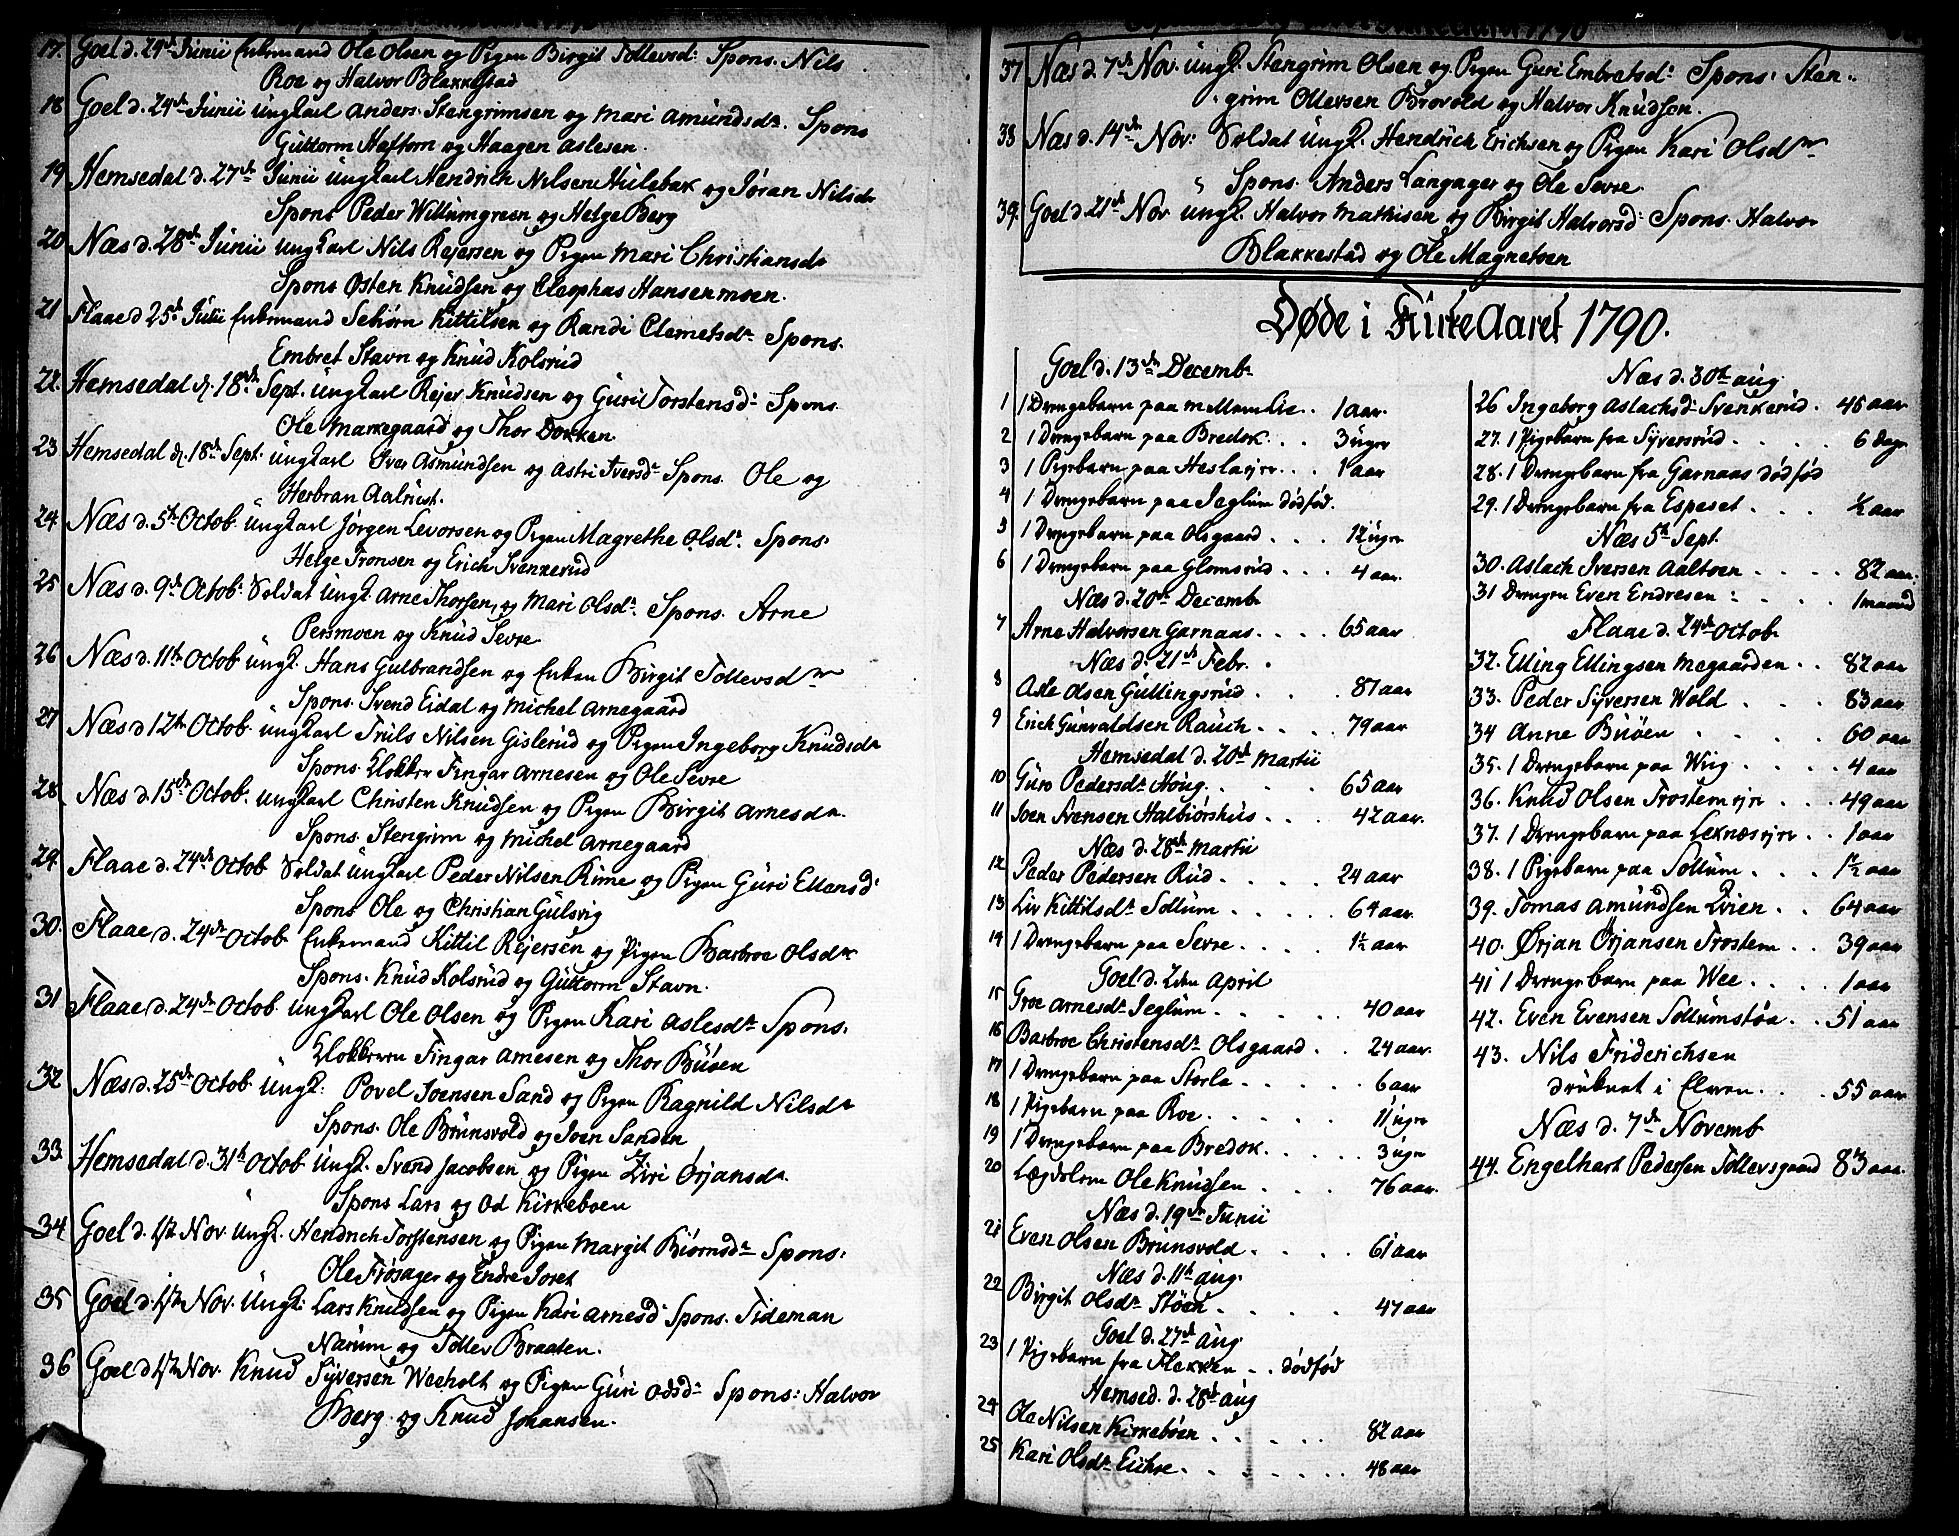 17. Goel d. 24de Junii Enkemand Ole Olsen og Pigen Birgit Tollevsd: Spons. Nils
Roe og Halvor Blakkestad
18 Goel d. 24de Junii Ungkarl Anders Stengrimsen og Mari Amundsdr. Spons
Guttorm Haftorn og Haagen Aslesen.
19 Hemsedal d. 27de Junii Ungkarl Hendrich Nilsen Hulebak og Jøran Nilsdr
Spons Peder Willumgreen og Helge Berg
20 Næs d. 28de Junii Ungkarl Nils Rejersen og Pigen Mari Christiansdr
Spons Østen Knudsen og Cleophas Hansenmoen.
21 Flaae d 25de Julii Enkemand Schørn Kittilsen og Randi Clemetsdr. Spons.
Embret Stavn og Knud Kolsrud
22. Hemsedal d. 18de Sept. Ungkarl Rejer Knudsen og Guri Torstensd: Spons.
Ole Markegaard og Thor Dokken
23 Hemsedal d. 18de Sept. Ungkarl Iver Asmundsen og Astri Iversdr Spons. Ole og
Herbran Aalrust.
24. Næs d. 5te Octob. Ungkarl Jørgen Levorsen og Pigen Magrethe Olsdr. Spons:
Helge Tronsen og Erich Svenkerud
25 Næs d. 9de Octob: Soldat Ungk. Arne Thorsen, og Mari Olsdr. Spons. Arne
Persmoen og Knud Sevre
26 Næs d. 11te Octob Ungk. Hans Gulbrandsen og Enken Birgit Tollevsdr
Spons. Svend Eidal og Michel Arnegaard
27 Næs d 12te Octob. Ungkarl Truls Nilsen Gislerud og Pigen Ingeborg Knudsdr
Spons. Klokker Fingar Arnesen og Ole Sevre
28 Næs d. 15de Octob. Ungkarl Christen Knudsen og Pigen Birgit Arnesdr.
Spons. Stengrim og Michel Arnegaard
29. Flaae d. 24de Octob Soldat Ungkarl Peder Nilsen Rime og Pigen Guri Ellensd:
Spons Ole og Christian Gulsvig
30. Flaae d. 24de Octob. Enkemand Kittil Rejersen og Pigen Barbroe Olsdr
Spons. Knud Kolsrud og Guttorm Stavn.
31 Flaae d. 24de Octob Ungkarl Ole Olsen og Pigen Kari Aslesdr Spons.
Klokkeren Fingar Arnesen og Thor Buøen
32 Næs d. 25de Octob Ungk: Povel Joensen Sand og Pigen Ragnild Nilsdr
Spons. Ole Brunsvold og Joen Sanden
33. Hemsedal d. 31te Octob Ungk. Svend Jacobsen og Pigen Ziri Ørjansdr.
Spons Lars og Od Kirkeboen
34 Goel d. 1ste Nov Ungk. Hendrich Torstensen og Pigen Margit Biørnsdr Spons:
Ole Frøsager og Endre Joret
35 Goel d. 1ste Nov. Ungk: Lars Knudsen og Pigen Kari Arnesd: Spons. Tideman
Narum og Tollev Braaten.
36 Goel d 1ste Nov. Knud Syversen Weeholt og Pigen Guri Odsd: Spons: Halvor
Berg og Knud Johansen.
37 Næs d. 7de Nov. Ungk. Stengrim Olsen og Pigen Guri Embretsd: Spons: Sten-
grim Ollevsen Brovold og Halvor Knudsen.
38 Næs d. 14de Nov: Soldat Ungk. Hendrich Erichsen og Pigen Kari Olsdr
Spons. Anders Langager og Ole Sevre
39. Goel d 21de Nov Ungk. Halvor Mathisen og Birgit Halvorsd: Spons. Halvor
Blakkestad og Ole Magnetoen
Døde i KirkeAaret 1790.
Goel d. 13de Decembr
1 1 Drengebarn paa Mellemlie .. 1 aar.
2 1 Drengebarn paa Bredok. .. 3 uger
3 1 Pigebarn paa Heslaejer. .. 1 aar
4 1 Drengebarn paa Jeglum dødfød.
5 1 Drengebarn paa Olsgaard ... 12 uger
6 1 Drengebarn paa Glomsrud ... 4 aar.
Næs d. 20de Decemb
7 Arne Halvorsen Garnaas .... 65 aar
Næs d. 21de Febr.
8 Asle Olsen Gullingsrud ... 87 aar
9 Erich Gunvaldsen Rauch .... 79 aar
Hemsedal d. 20de Martii
10 Guro Pedersdr Houg. .... 65 aar
11 Joen Svensen Halbiørshus ... 42 aar.
Næs d. 28de Martii
12 Peder Pedersen Rud .... 24 aar
13 Liv Kittilsdr Sollum ..... 64 aar
14 1 Drengebarn paa Sevre .... 1½ aar
Goel d. 2den April
15 Groe Arnesdr Jeglum ...... 40 aar
16 Barbroe Christensdr Olsgaard .. 24 aar.
17 1 Drengebarn paa Storla ..... 6 aar
18 1 Pigebarn paa Roe. ..... 11 uger
19 1 Drengebarn paa Bredok. .... 3 uger
20 Lægdslem Ole Knudsen .... 76 aar.
Næs d. 19de Junii
21 Even Olsen Brunsvold .... 61 aar
Næs d. 11te Aug.
22 Birgit Olsdr Støen ..... 47 aar
Goel d. 27de Aug
23 1 Pigebarn fra Flekken .. dødfød
Hemsed. d. 28de Aug
24 Ole Nilsen Kirkebøen ..... 82 aar
25 Kari Olsdr Eikre ...... 48 aar
Næs d. 30te Aug
26 Ingeborg Aslachsd: Svenkerud . 45 aar
27. 1 Pigebarn fra Syversrud .... 6 dage
28. 1 Drengebarn fra Garnaas dødfød
29. 1 Drengebarn fra Espeset ... ½ aar
Næs 5te Sept
30. Aslach Iversen Aaltoen .... 82 aar.
31 Drengen Even Endresen .... 1 maaned
Flaae d. 24de Octob
32. Elling Ellingsen Megaarden .. 82 aar
33. Peder Syversen Wold ... 83 aar
34 Anne Buøen ..... 60 aar
35. 1 Drengebarn paa Wiig .... 4 aar
36. Knud Olsen Trostemejer .. 49 aar
37. 1 Drengebarn paa Leknæsejer .. 1 aar
38. 1 Pigebarn paa Sollum ... 1½ aar
39. Tomas Amundsen Lvien .. 64 aar
40. Ørjan Ørjansen Trostem .. 39 aar
41 1 Drengebarn paa Wee .... 1 aar
42. Even Evensen Sollumstøa .. 51 aar
43. Nils Friderichsen
druknet i Elven ... 55 aar
Næs d. 7de Novemb
44. Engelhart Pedersen Tollevsgaard 83 aar.